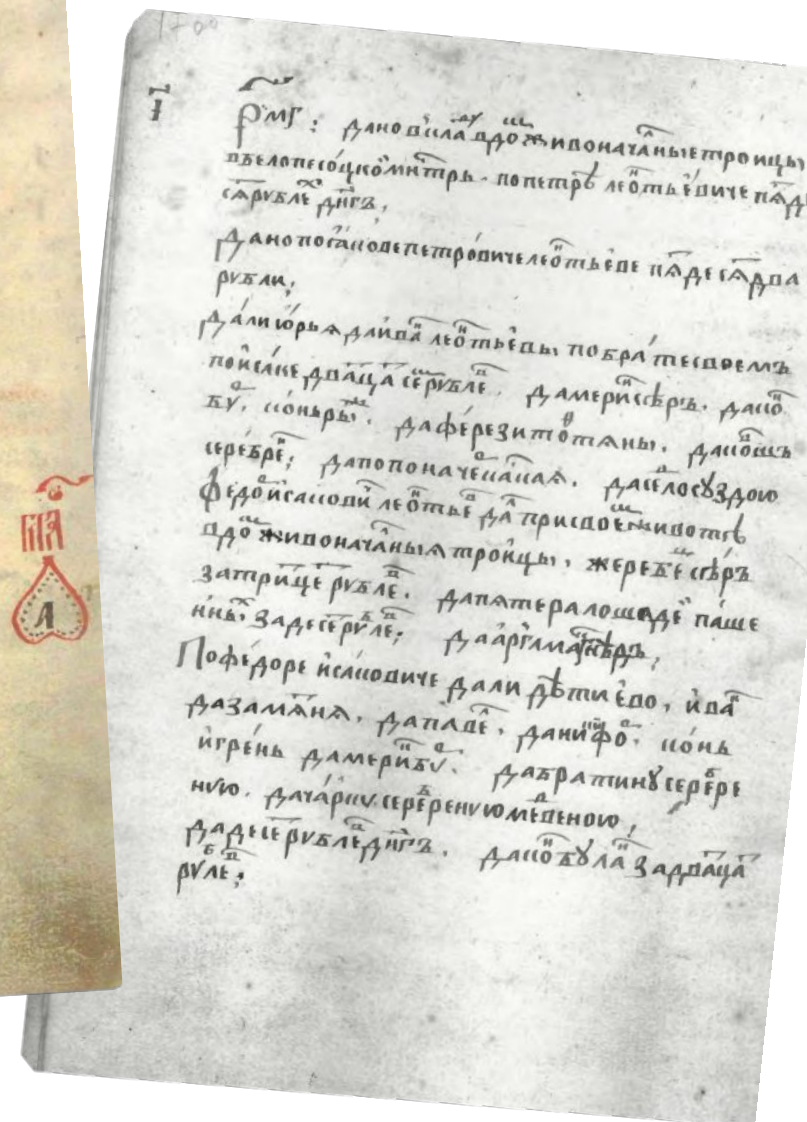 1700
ї҃
Рмг҃ : дано вклада в дом живоначалные троицы
в белопесоцкои мнтрь . по петрѣ леотьевиче пядь
сят рублех днгъ ,
дано по саикове петровиче леотьеве пядесят два
рубли ,
дали юрья да иван леотьевы по брате своемъ
по исаке двацат семь рублев . да мерин сѣръ . да кон
бур , конь рыж . да ферези тотяны . да ковшъ
серебрен ; да попона чекаская . да село суздою
Федор исакович леотьев дал при своем животѣ
в дом живоначалныя троицы , жеребец сѣръ
за трицет рублев . да пятера лошадеи паше
нных за десет рублев ; да аргамак гнѣдъ ,
По федоре исаковиче дали дѣти ево , иван
да замятня , да павел , да никифор , конь
игрень да мерин бур . да братину серебре
ную . да чарку серебреную меденою ,
да десет рублев днгъ . да кон булан за двацат
рублев ;
гла҃
А